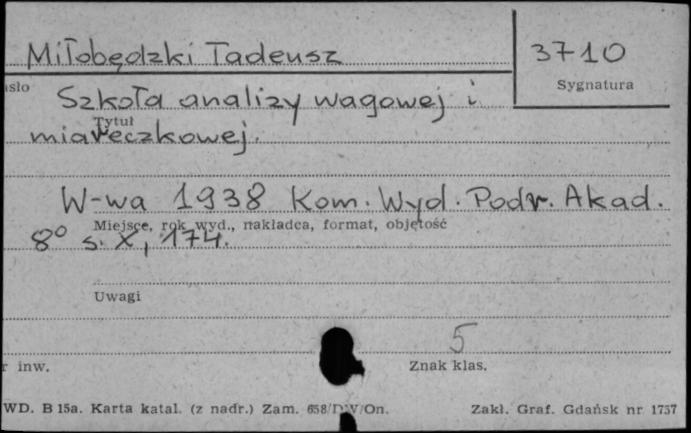 Miłobędzki Tadeusz
3710
Sygnatura
Szkoła analizy wagowej i
Tytuł
miareczkowej.
W-wa 1938 Kom. Wyd. Podr. Akad.
Miejsce, rok wyd., nakładca, format, objętość
8° s. X, 174.
Uwagi
5
r inw.
Znak klas.
WD. B 15a. Karta katal. (z nadr.) Zam. 658/DW/On.
Zakł. Graf. Gdańsk nr 1757